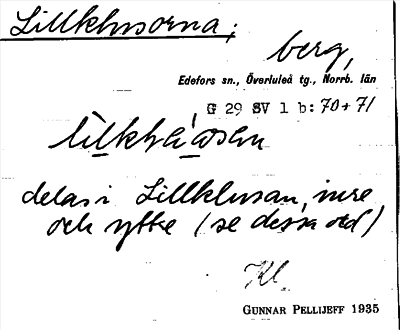 Lillklusorna;
berg,
Edefors sn., Överluleå tg., Norrb. län
G 29 SV 1 b: 70+71
delas i Lillklusan, inre
och yttre (se dessa ord)
Kl.
GUNNAR PELLIJEFF 1935